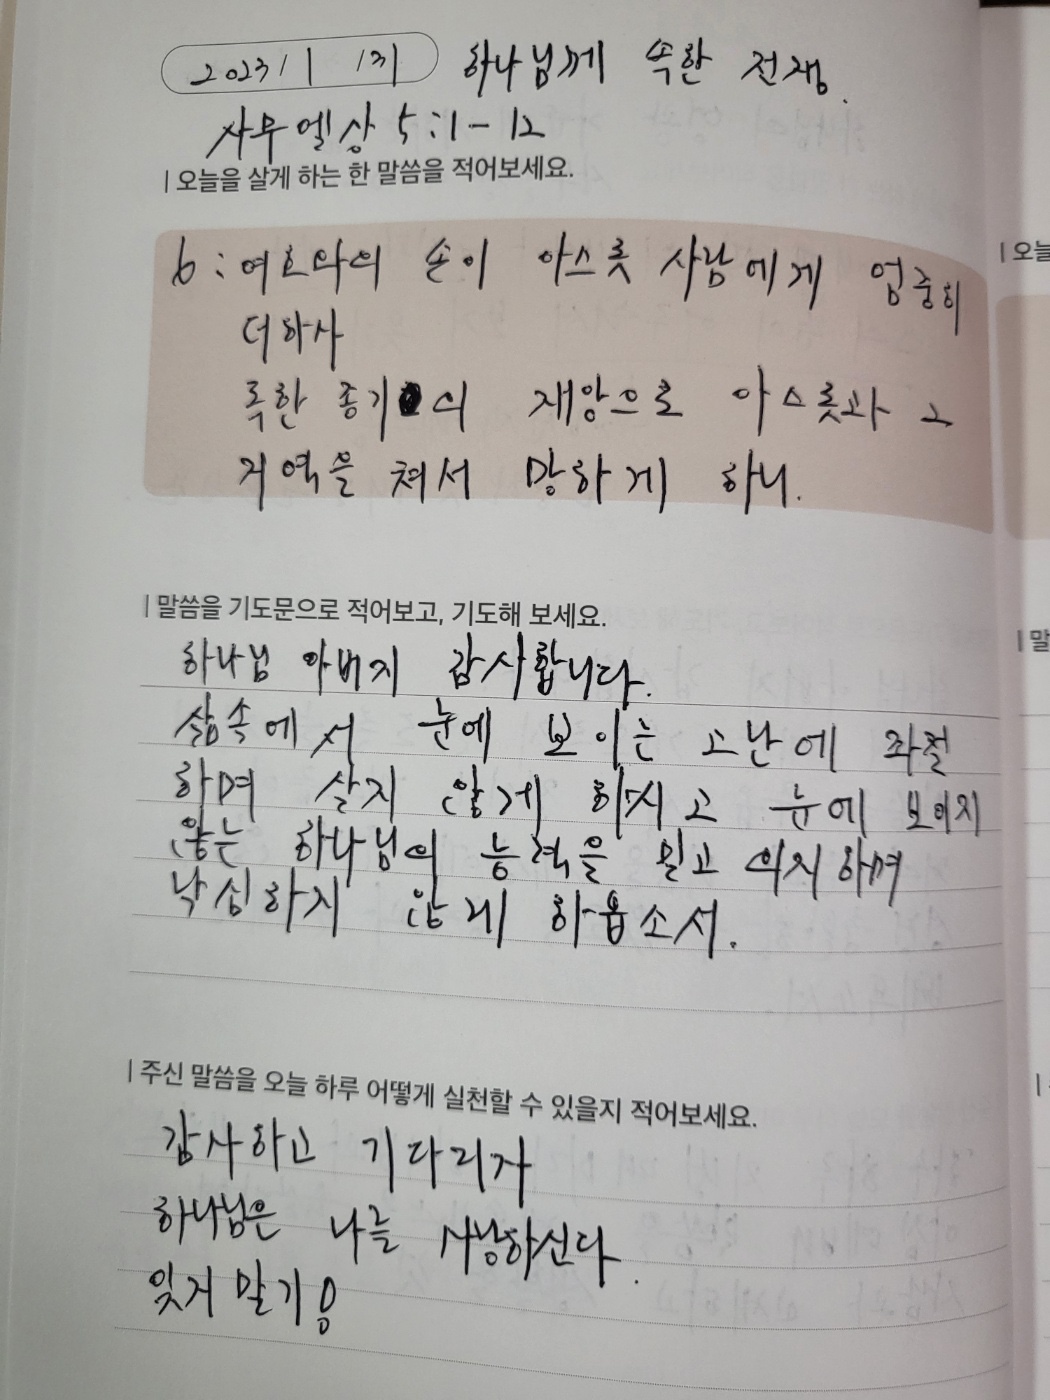 2023/1 /31 하나님께 속한 전쟁.
사무엘상 5:1-12
| 오늘을 살게 하는 한 말씀을 적어보세요.
6:여호와의 손이 아스돗 사람에게 엄중히
더하사
독한 종기의 재앙으로 아스돗과 그
지역을 쳐서 망하게 하니.
| 말씀을 기도문으로 적어보고, 기도해 보세요.
하나님 아버지 감사합니다.
삶속에서 눈에 보이는 고난에 좌절
하며 살지 않게 하시고 눈에 보이지
않는 하나님의 능력을 믿고 의지하며
낙심하지 않게 하옵소서.
| 주신 말씀을 오늘 하루 어떻게 실천할 수 있을지 적어보세요.
감사하고 기다리자
하나님은 나를 사랑하신다.
잊지말기!
| 오늘
| 말